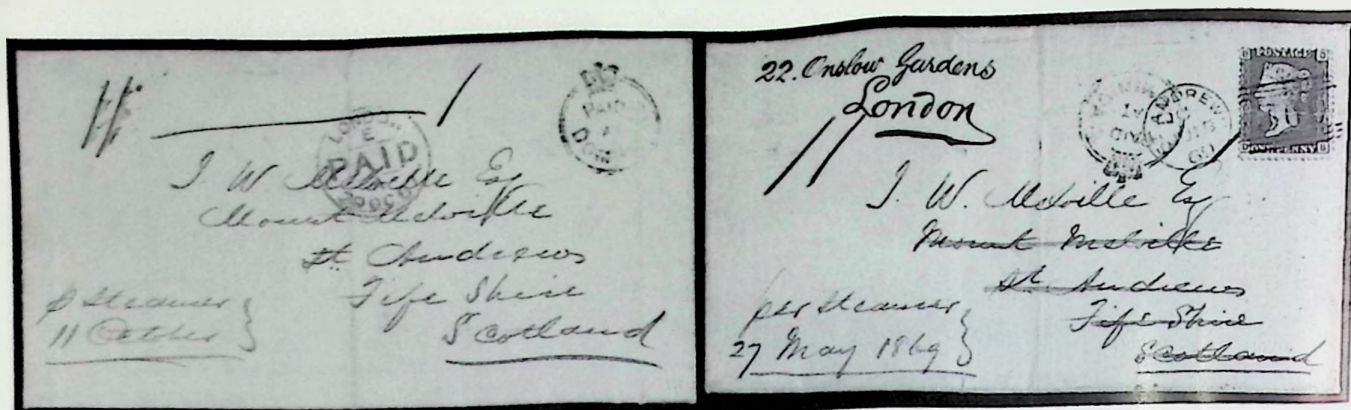 LONDON
E
PAID
PAID
J. W. Melville Esq
Mount Melville
St Andrews
Fife Shire
Scotland
p Steamer
11 October
22. Onslow Gardens
London
POSTAGE
ONE PENNY
J. W. Melville Esq
Mount Melville
St Andrews
Fife Shire
Scotland
per Steamer
27 May 1869